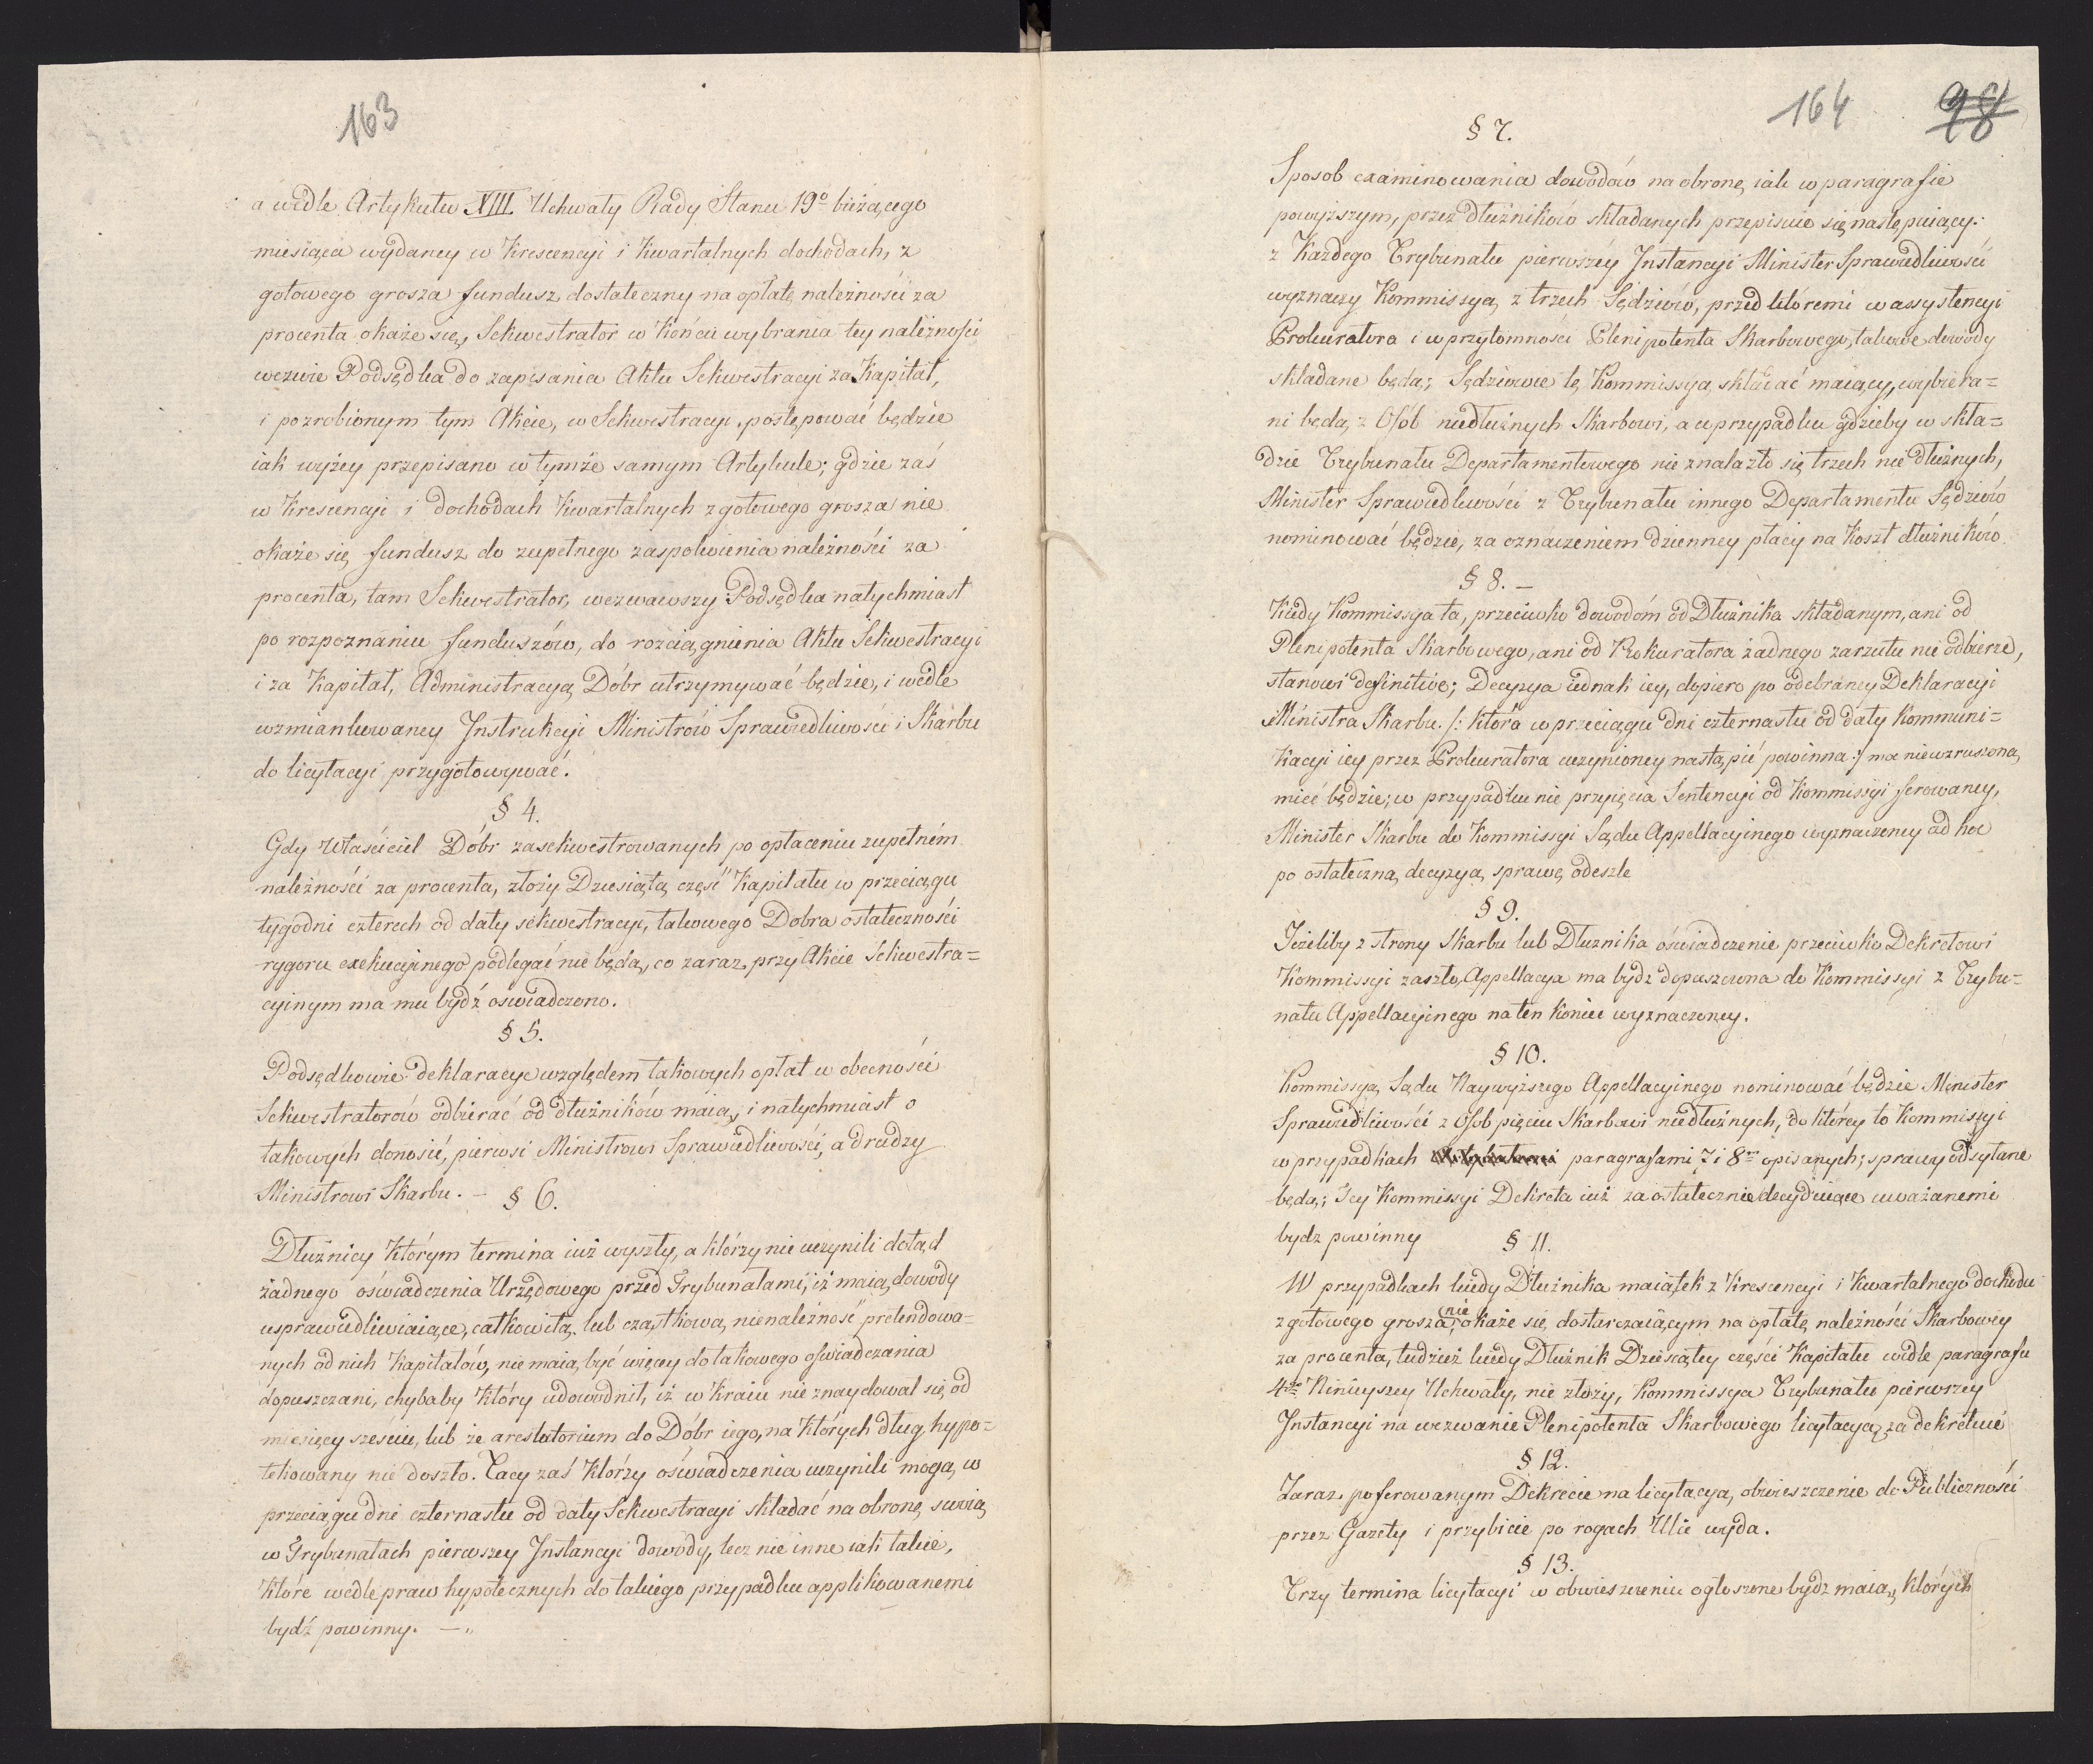 163
a wedle Artykułu XIII. Uchwały Rady Stanu 19º bieżącego
miesiąca wydaney w Krescencyi i Kwartalnych dochodach, z
gotowego grosza fundusz dostateczny na opłatę należności za
procenta okaże się, Sekwestrator w Końcu wybrania tey należności
wezwie Podsędka do zapisania Aktu Sekwestracyi za Kapitał,
i pozrobionym tym Akcie, w Sekwestracyi postępować będzie
iak wyżey przepisano w tymże samym Artykule; gdzie zaś
w Krescencyi i dochodach Kwartalnych z gotowego grosza nie
okaże się fundusz do zupełnego zaspokoienia należności za
procenta, tam Sekwestrator, wezwawszy Podsędka natychmiast
po rozpoznaniu funduszów, do rozciągnienia Aktu Sekwestracyi
i za Kapitał, Administracyą Dóbr utrzymywać będzie, i wedle
wzmiankowaney Instrukcyi Ministrów Sprawiedliwości i Skarbu
do licytacyi przygotowywać.
§ 4.
Gdy Właściciel Dóbr zasekwestrowanych po opłaceniu zupełném
należności za procenta, złoży Dziesiątą część Kapitału w przeciągu
tygodni czterech od daty sekwestracyi, takowego Dobra ostateczności
rygoru exekucyinego podlegać nie będą, co zaraz przy Akcie Sekwestra=
cyinym ma mu bydź oswiadczono.
§ 5.
Podsędkowie deklaracye względem takowych opłat w obecności
Sekwestratorów odbierać od dłużników maią, i natychmiast o
takowych donosić, pierwsi Ministrowi Sprawiedliwości, a drudzy
Ministrowi Skarbu. –
§ 6.
Dłużnicy Którym termina iuż wyszły, a którzy nie uczynili dotąd
żadnego oświadczenia Urzędowego przed Trybunałami, iż maią dowody
usprawiedliwiaiące, całkowitą lub cząstkową nienależność pretendowa=
nych od nich Kapitałów, nie maią być więcey do takowego oświadczania
dopuszczani, chybaby Który udowodnił, iż w Kraiu nie znaydował się od
miesięcy sześciu, lub że arestatorium do Dóbr iego, na Których dług hypo=
tekowany nie doszło. Tacy zaś Którzy oświadczenia uczynili mogą w
przeciągu dni czternastu od daty Sekwestracyi składać na obronę swoią
w Trybunałach pierwszey Instancyi dowody, lecz nie inne iak takie,
Które wedle praw hypotecznych do takiego przypadku applikowanemi
bydź powinny. —
164
98
§ 7.
Sposob examinowania dowodów na obronę, iak w paragrafie
powyższym, przez dłużników składanych przepisuie się następuiący:
z Każdego Trybunału pierwszéy Instancyi Minister Sprawiedliwości
wyznaczy Kommissyą z trzech Sędziów, przed któremi w assystencyi
Prokuratora i w przytomności Plenipotenta Skarbowego, takowe dowody
składane będą; Sędziowie tę Kommissyą składać maiący, wybiera=
ni będą z Osób niedłużnych Skarbowi, a w przypadku gdzieby w skła=
dzie Trybunału Departamentowego nie znalazło się trzech nie dłużnych,
Minister Sprawiedliwości z Trybunału innego Departamentu Sędziów
nominować będzie, za oznaczeniem dzienney płacy na Koszt dłużników.
§ 8. –
Kiedy Kommissya ta, przeciwko dowodóm od Dłużnika składanym, ani od
Plenipotenta Skarbowego, ani od Prokuratora żadnego zarzutu nie odbierze,
stanowi definitive; Decyzya iednak iey, dopiero po odebraney Deklaracyi
Ministra Skarbu /: Która w przeciągu dni czternastu od daty Kommuni=
Kacyi iey przez Prokuratora uczynioney nastąpić powinna :/ moc niewzruszoną
mieć będzie; w przypadku nie przyięcia Sentencyi od Kommissyi ferowaney,
Minister Skarbu do Kommissyi Sądu Appellacyinego wyznaczoney ad hoc
po ostateczną decyzyą sprawę odeszle
§ 9.
Jeżeliby z strony Skarbu lub Dłuznika oświadczenie przeciwko Dekretowi
Kommissyi zaszło, Appellacya ma bydz dopuszczona do Kommissyi z Trybu=
nału Appellacyinego na ten Koniec wyznaczoney.
§ 10.
Kommissyą Sądu Naywyższego Appellacyinego nominować będzie Minister
Sprawiedliwości z Osob pięciu Skarbowi niedłużnych, do którey to Kommissyi
w przypadkach paragrafami 7 i 8ᵐ opisanych; sprawy odsyłane
będą; Jey Kommissyi Dekreta iuż za ostatecznie decyduiące uważanemi
bydz powinny
§ 11.
W przypadkach kiedy Dłużnika maiątek z Krescencyi i Kwartalnego dochodu
z gotowego grosza, nie okaże się dostarczaiącym na opłatę należności Skarbowey
za procenta, tudzież kiedy Dłużnik Dziesiątey części Kapitału wedle paragrafu
4go Ninieyszey Uchwały, nie złoży, Kommissya Trybunału pierwszey
Instancyi na wezwanie Plenipotenta Skarbowego licytacyą zadekretuie
§ 12.
Zaraz po ferowanym Dekrecie na licytacyą, obwieszczenie do Publiczności
przez Gazety i przybicie po rogach Ulic wyda.
§ 13.
Trzy termina licytacyi w obwieszczeniu ogłoszone bydz maią, Których